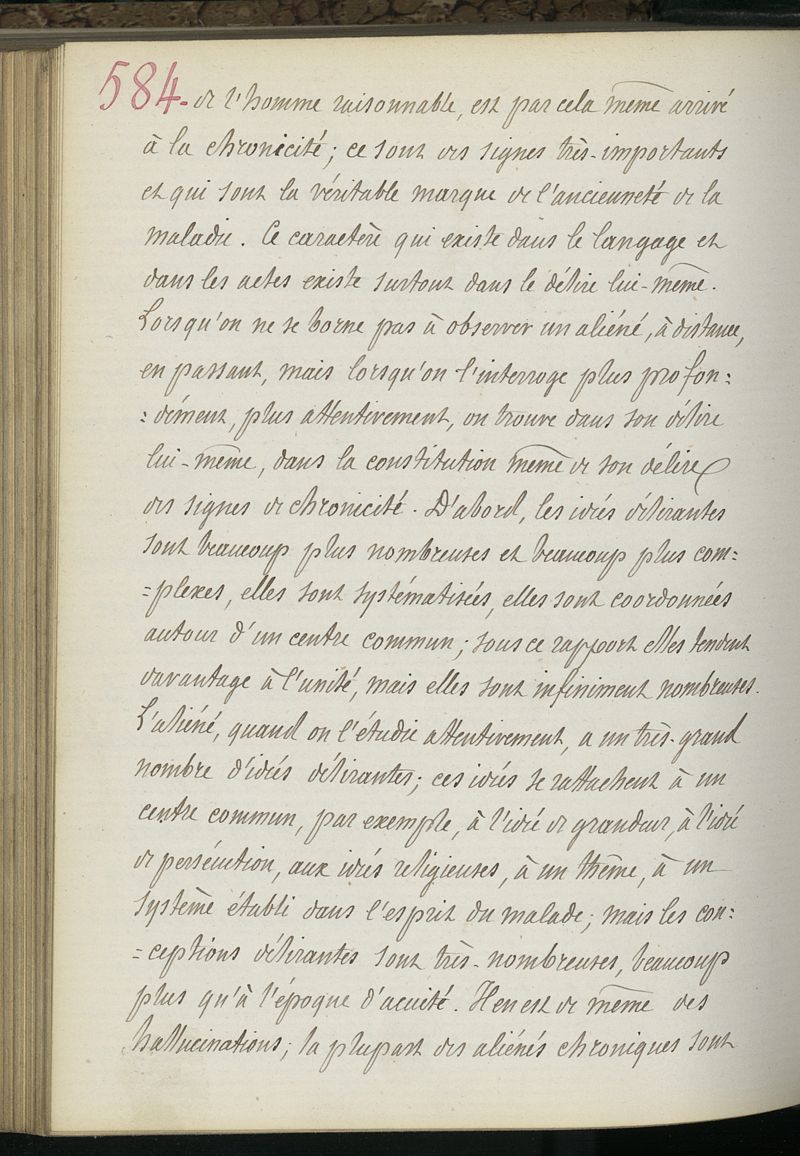 584. de l'homme raisonnable, est par cela même arrivé
à la chronicité; ce sont des signes très-importants
et qui sont la véritable marque de l'ancienneté de la
maladie. Ce caractère qui existe dans le langage et
dans les actes existe surtout dans le délire lui-même.
Lorsqu'on ne se borne pas à observer un aliéné, à distance,
en passant, mais lorsqu'on l'interroge plus profon:
:dément, plus attentivement, on trouve dans son délire
lui-même, dans la constitution même de son délire
des signes de chronicité. D'abord, les idées délirantes
sont beaucoup plus nombreuses et beaucoup plus com:
=plexes, elles sont systématisées, elles sont coordonnées
autour d'un centre commun; sous ce rapport elles tendent
davantage à l'unité, mais elles sont infiniment nombreuses.
L'aliéné, quand on l'étudie attentivement, a un très-grand
nombre d'idées délirantes; ces idées se rattachent à un
centre commun, par exemple, à l'idée de grandeur, à l'idée
de persécution, aux idées religieuses, à un thême, à un
système établi dans l'esprit du malade; mais les con:
=ceptions délirantes sont très-nombreuses, beaucoup
plus qu'à l'époque d'acuité. Il en est de même des
hallucinations; la plupart des aliénés chroniques sont